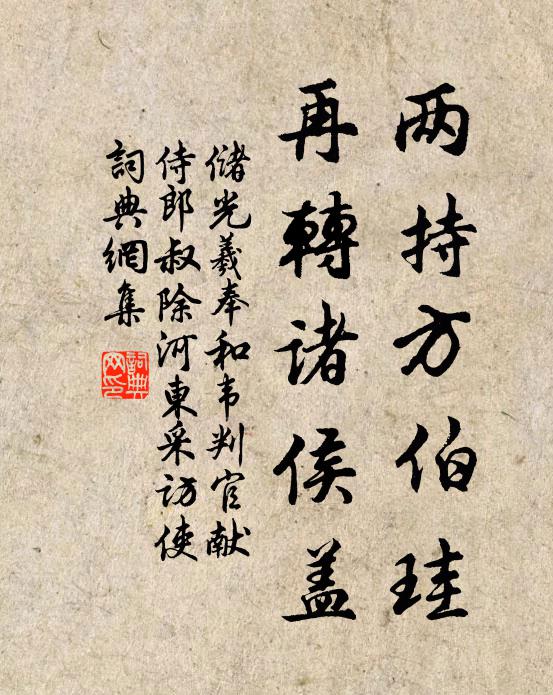 两持方伯珪
再轉诸侯盖
储光羲奉和韦判官献
侍郎叔除河東采访使
詞典網集
詞典
网印